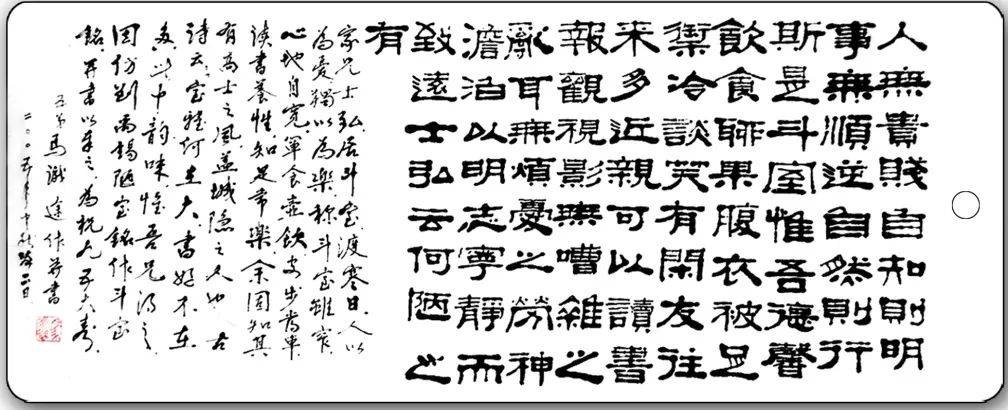 人無貴賤自知則明
事無順逆自然則行
斯是斗室惟吾德馨
飲食聊果腹衣被足
禦冷談笑有閑友往
來多近親可以讀書
報觀視影無嘈雜之
亂耳無煩憂之勞神
澹泊以明志寧靜而
致遠士弘云何陋之
有
家兄士弘居斗室渡寒日人以
為憂獨以為樂稱斗室雖窄
心地自寬簞食壺飲安步當車
讀書養性知足常樂余固知其
有高士之風並城隱之人也古
詩云室雅何在大書好不在
多此中韵味惟吾兄得之
因仿劉禹錫陋室銘作斗室
銘并書以奉之為祝九五大壽
五弟馬識途作并書
二〇〇五年十